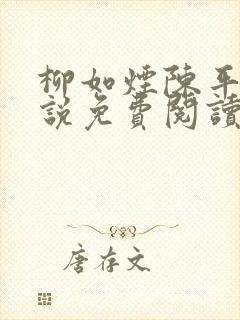 柳如煙陳平
說免費閱讀
唐存文